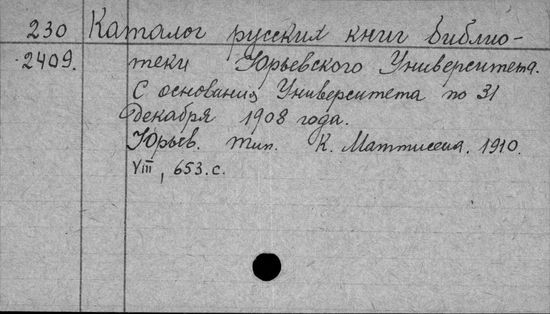 230 Каталог русских книг библио-
2409. теки Юрьевского Университета.
С основания Университета по 31
декабря 1908 года.
Юрьев. тип. К. Маттисена. 1910.
VIII, 653.с.